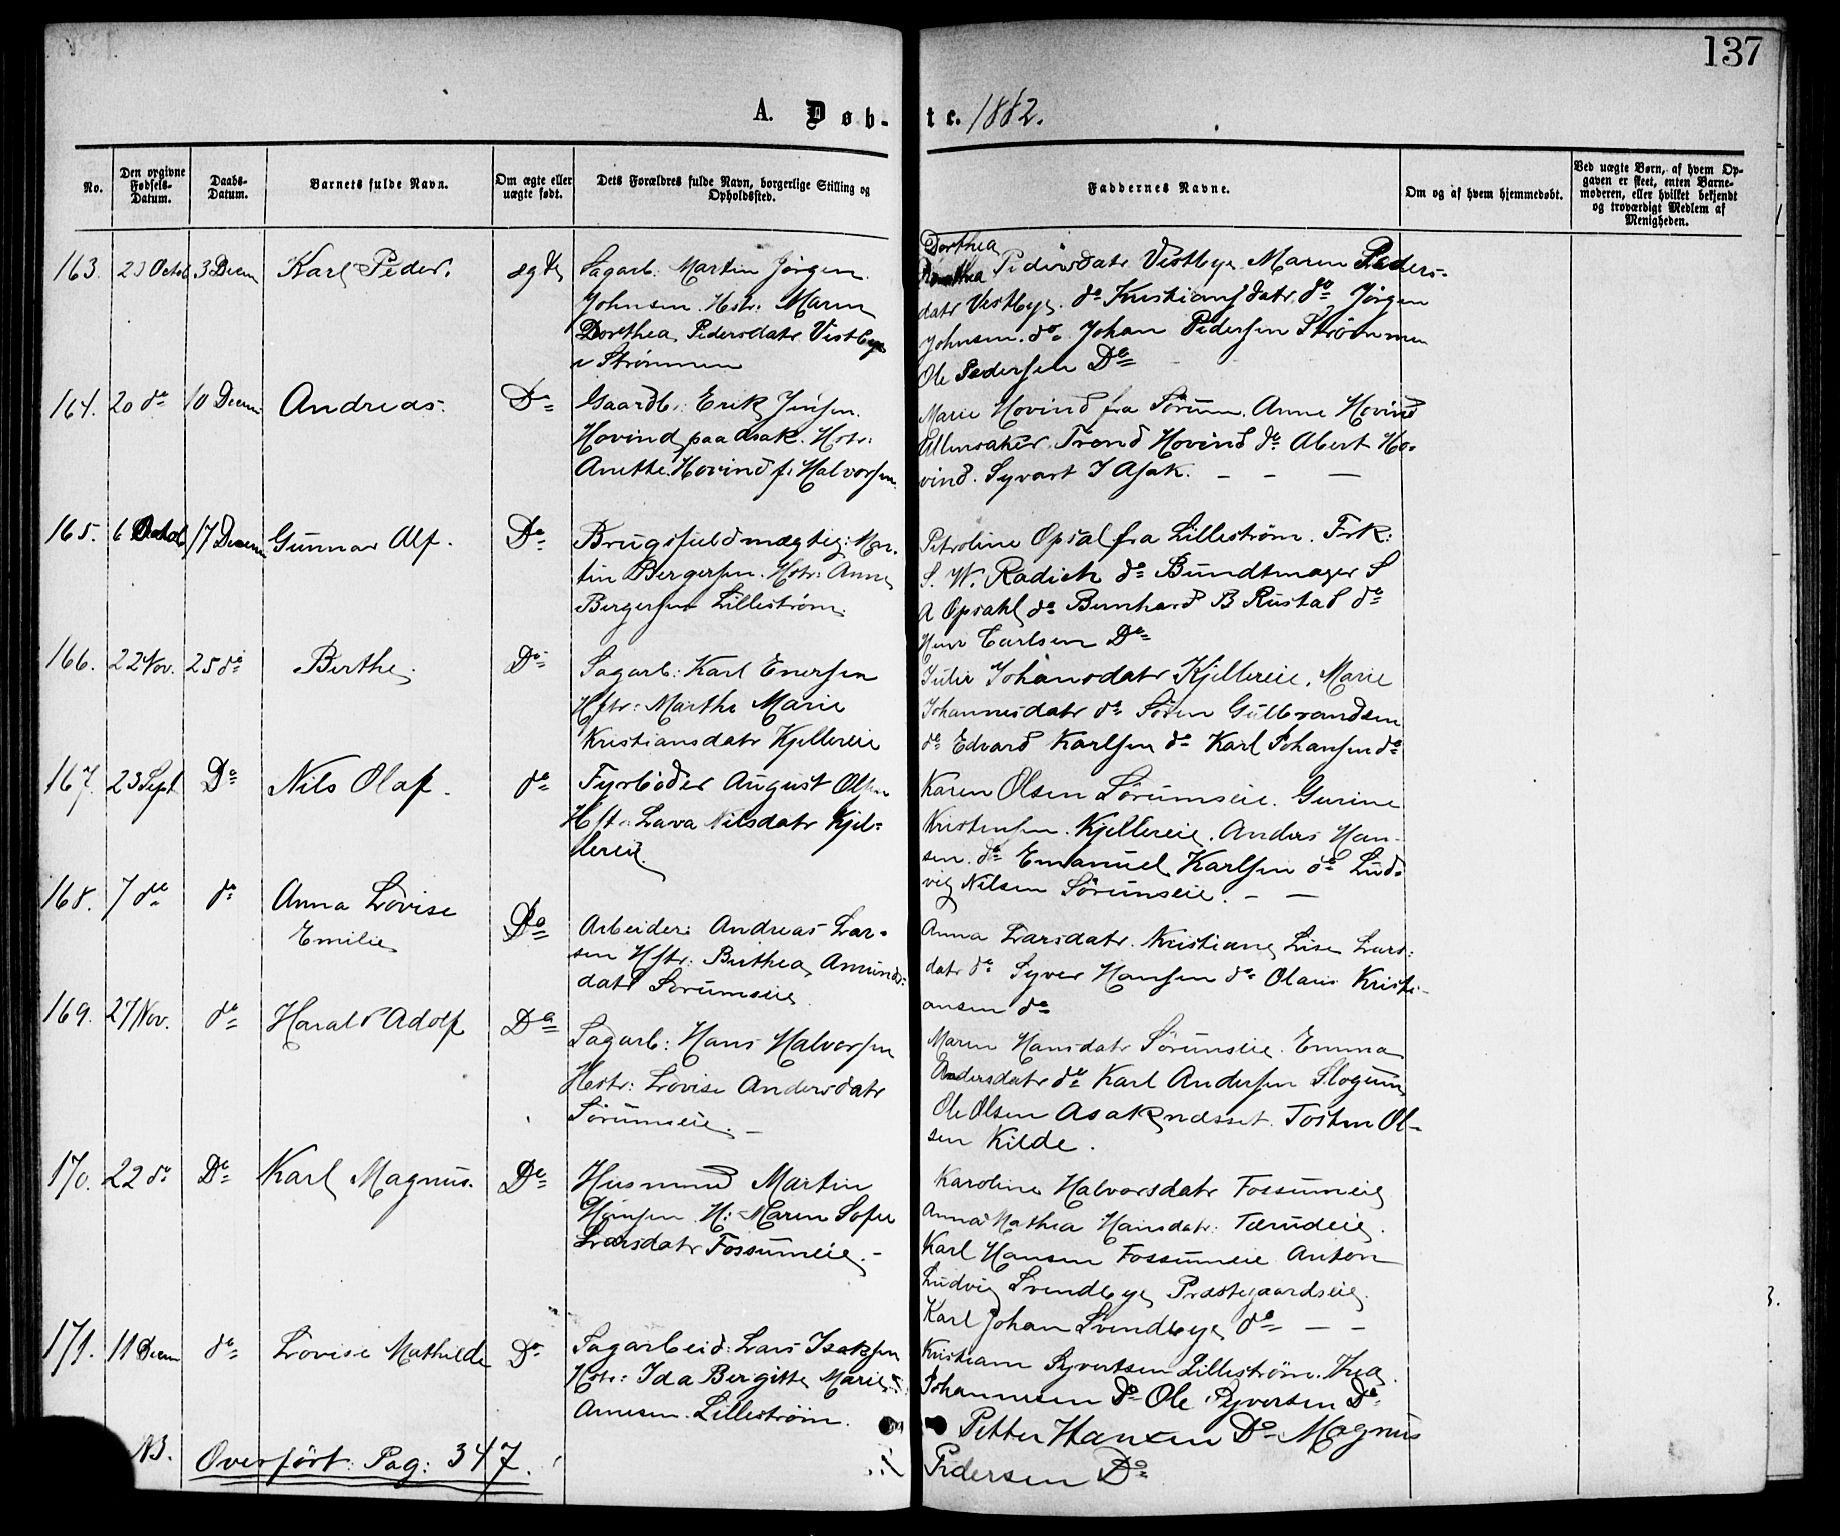 137
A. Døb-
te. 1882.
No.
Den opgivne Fødsels-Datum.
Daabs-Datum.
Barnets fulde Navn.
Om ægte eller uægte født.
Dets Forældres fulde Navn, borgerlige Stilling og Opholdssted.
Faddernes Navne.
Om og af hvem hjemmedøbt.
Ved uægte Børn, af hvem Op-
gaven er skeet, enten Barne-
moderen, eller hvilket bekjendt
og troværdigt Medlem af
Menigheden.
163. 23 Octob 3 Decem Karl Peder. ægte
Sagarb. Martin Jørgen
Johnsen. Hstr. Maren
Dorthea Pedersdatr Vestbye
v Strømmen
Dorthea
Pedersdatr Vestbye Maren Peders-
datr Vestbye. do Kristiansdatr do Jørgen
Johnsen. do Johan Pedersen Strømmen
Ole Pedersen Do
164. 20 do 10 Decem Andreas. Do
Gaardb. Erik Jensen
Hovind paa Asak. Hstr:
Anethe Hovind f. Halvorsen
Marie Hovind fra Sørum. Anne Hovind
Ullensaker. Trond Hovind do Abert Ho-
vind. Syvart I Asak. - - -
165. 6 Octob 17 Decem Gunnar Alf. Do
Brugsfuldmægtig: Mar-
tin Bergersen. Hstr: Anne
Bergersen Lillestrøm.
Petroline Opsal fra Lillestrøm. Frk:
S. W. Radich do Bundtmager S
A Opsahl do Bernhard B Rustad do
Carlsen Do
166. 22 Nov. 25 do Berthe. Do
Sagarb: Karl Enersen
Hstr: Marthe Marie
Kristiansdatr Kjellereie
Julie Johansdatr Kjellereie. Marie
Johannesdatr do Søren Gulbrandsen
do Edvard Karlsen do Karl Johansen do
167. 23 Sept Do Nils Olaf. do
Fyrbøder August Olsen
Hst: Lava Nilsdatr Kjel-
lereie.
Karen Olsen Sørumseie. Gurine
Kristensen. Kjellereie. Anders Han-
sen. do Emanuel Karlsen do Lud-
vig Nilsen Sørumseie. - -
168. 7 do do Anna Lovise
Emilie Do
Arbeider: Andreas Lar-
sen Hstr: Berthea Amunds-
datr Sørumseie
Anna Larsdatr. Kristiane Lise Lars-
datr do Syver Hansen do Olaus Kristi-
ansen do
169. 27 Nov. do Harald Adolf Do
Sagarb: Hans Halvorsen
Hstr: Lovise Andersdatr
Sørumseie. -
Maren Hansdatr Sørumseie. Emma
Andersdatr do Karl Andersen Slogum
Ole Olsen Asakrudset. Tosten Ol-
sen Kilde.
170. 22 do Do Karl Magnus. Do
Husmand Martin
Hansen. H: Maren Sofie
Larsdatr Fossumeie. -
Karoline Halvorsdatr Fossumeie
Anna Mathea Hansdatr. Tærudeie.
Karl Hansen Fossumeie Anton
Ludvig Svendbye Præstegaardseie.
Karl Johan Svendbye do - -
171. 11 Decem do Lovise Mathilde Do
Sagarbeid: Lars Isaksen
Hstr: Ida Bergitte Marie
Arnesen. Lillestrøm.
Kristiane Syvertsen Lillestrøm. Thea
Johannesen Do Ole Syversen Do
Petter Hansen Do Magnus
Pedersen Do
NB. Overført: Pag: 347.